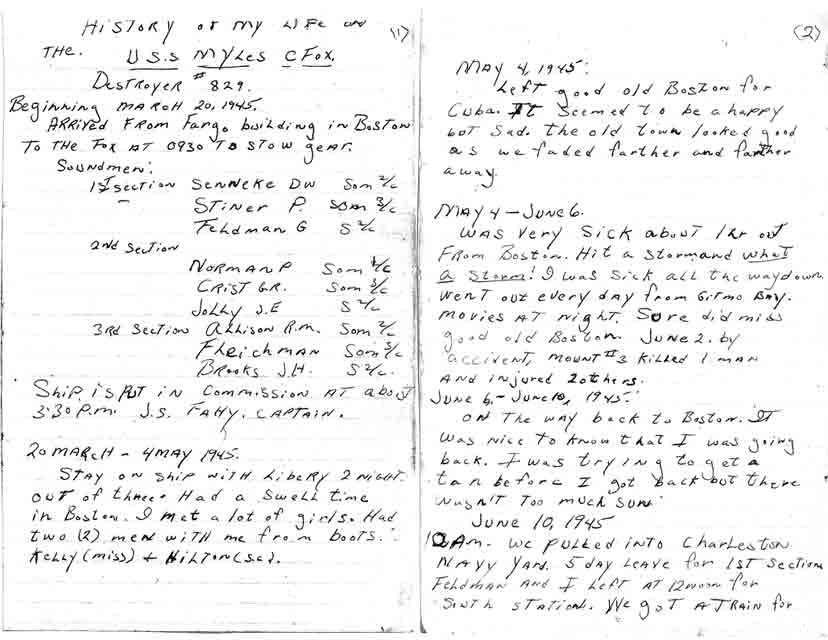 HISTORY OF MY LIFE ON (1)
THE. U.S.S MYLES C FOX.
DESTROYER # 829.
Beginning MARCH 20, 1945.
ARRIVED FROM Fargo building in BOSTON
TO THE FOX AT 0930 TO STOW GEAR.
SOUNDMEN:
1ST SECTION SENNEKE DW Som 2/c
STINER P. Som 3/c
FELDMAN G S 2/c
2nd SECTION
NORMAN P Som 1/c
CRIST G.R. Som 3/c
JOLLY J.E S 2/c
3RD SECTION ALLISON R.M. Som 2/c
FLEICHMAN Som 3/c
BROOKS J.H. S 2/c.
SHIP IS PUT IN COMMISSION AT ABOUT
3:30 P.M. J.S. FAHY. CAPTAIN.
20 MARCH - 4 MAY 1945.
STAY ON SHIP WITH LIBERY 2 NIGHT.
OUT OF three. Had a swell time
in Boston. I met a lot of girls. Had
two (2) men with me from boots.
KELLY (MISS) + HILTON (S.C.).
(2)
MAY 4, 1945:
Left good old Boston for
Cuba. It seemed to be a happy
but sad. the old town looked good
as we faded farther and farther
away.
MAY 4 - JUNE 6.
WAS VERY SICK about 1 hr out
FROM Boston. Hit a storm and what
a storm! I was sick all the way down
went out every day from GITMO BAY.
movies AT night. Sure did miss
good old Boston. JUNE 2. by
accident, mount #3 killed 1 man
AND injured 2 others.
JUNE 6 - JUNE 10, 1945.
ON THE way back to Boston. IT
was nice to know that I was going
back. I was trying to get a
tan before I got back but there
wasn't too much sun.
JUNE 10, 1945
10 AM. we pulled into Charleston
NAVY Yard. 5 day leave for 1ST Section
FELDMAN AND I left AT 12 noon for
South Station. We GOT A TRAIN for